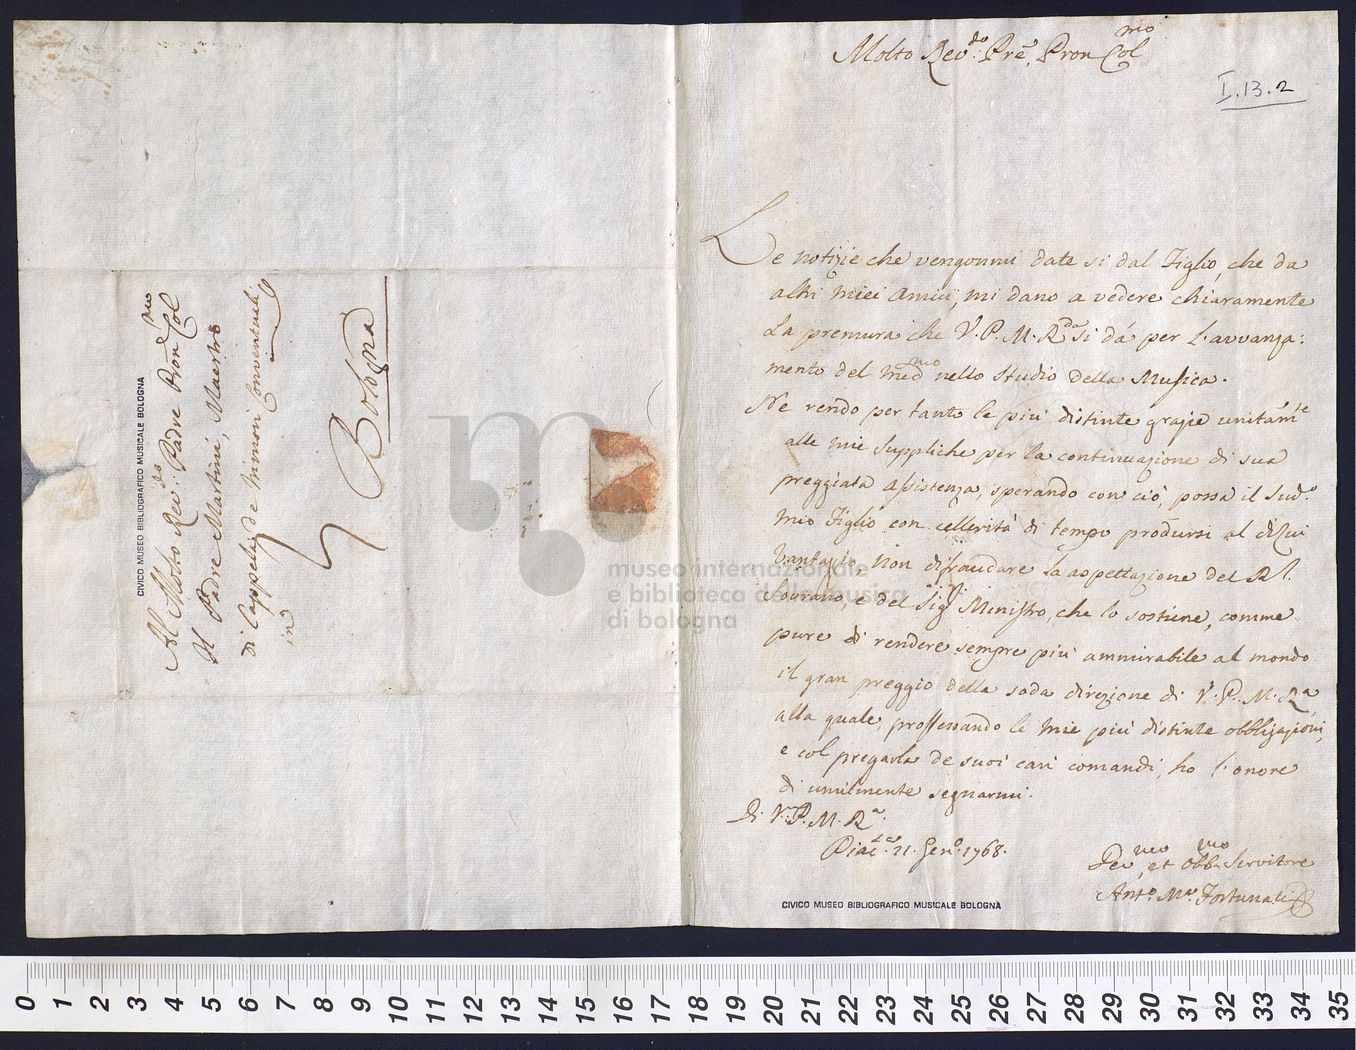 Molto Rev.do Prē, Pron Col.mo
I.13.2
Le notizie che vengonmi date si dal Figlio, che da
altri miei Amici, mi dano a vedere chiaramente
La premura che V. P. M. R.da si dá per l'avvanza:
mento del med.mo nello studio della Musica.
Ne rendo per tanto le piú distinte grazie unitam.te
alle mie suppliche per la continuazione di sua
preggiata assistenza, sperando con ció, possa il sud.o
mio Figlio con cellerità di tempo prodursi al di Lui
Vantagio, non difraudare la aspettazione del Rl.
Sovrano, e del Sig.r Ministro, che lo sostiene, comme
pure di rendere sempre piú ammirabile al mondo
il gran preggio della soda direzione di V. P. M. R.a,
alla quale, professando le mie piú distinte obbligazioni,
e col pregarla de suoi cari comandi, ho l'onore
di umilmente segnarmi.
Di V. P. M. R.a
Piac.za 21. Gen.o 1768.
Dev.mo et Obb.mo Servitore
Ant.o M.a Fortunati
CIVICO MUSEO BIBLIOGRAFICO MUSICALE BOLOGNA
Al Molto Rev.do Padre Pron Col.mo
Il Padre Martini, Maestro
di Cappella de Minori Conventuali
in
Bologna
CIVICO MUSEO BIBLIOGRAFICO MUSICALE BOLOGNA
museo internazionale
e biblioteca della musica
di bologna
0 1 2 3 4 5 6 7 8 9 10 11 12 13 14 15 16 17 18 19 20 21 22 23 24 25 26 27 28 29 30 31 32 33 34 35